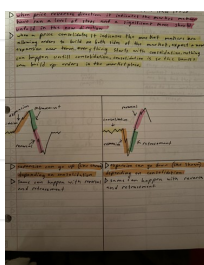 when price reverses direction it indicates the market makers
have ran a level of stops and a significant move should
unfold in the new direction
when price consolidates it indicates the market makers are
allowing orders to build on both side of the market, expect a new
expansion near term, everything starts with consolidation, nothing
can happen until consolidation, consolidation is so the smart
can build up orders in the marketplace
expansion
reversal
retracement
reversal
consolidation
retracement
expansion can go up (like above)
depending on consolidation
same can happen with reversal
and retracement
expansion can go down (like above)
depending on consolidation
same can happen with reversal
and retracement